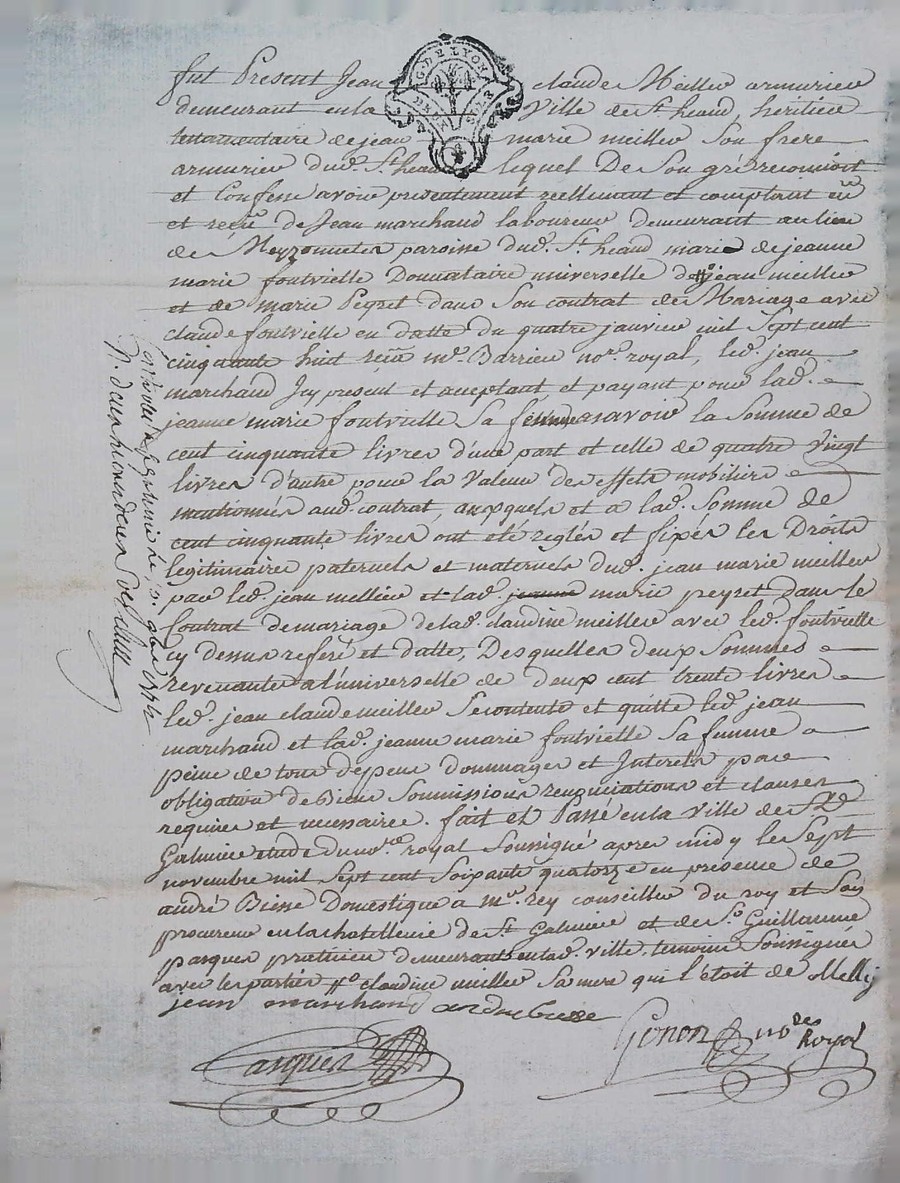 G. DE LYON
DEUX S. 4 D.R
fut Present Jean claude Meiller armurier
demeurant en la Ville de St. heand, heritier
testamentaire de jean marie meiller Son frere
armurier dud. St. heand lequel De Son gré reconnoit
et Confesse avoir presentement reellement et comptant eü
et reçeu de Jean marchand laboureur demeurant au lieu
de Meyzonnettes paroisse dud. St. heand mari de jeanne
marie fontvielle Donnataire universelle de jean meiller
et de marie Peyret dans Son contrat de Mariage avec
claude fontvielle en datte du quatre janvier mil Sept cent
cinquante huit reçeu me. Barrieu nore. royal, led. jean
marchand Icy present et acceptant, et payant pour lad.
jeanne marie fontvielle Sa femme savoir la Somme de
cent cinquante livres d'une part et celle de quatre Vingt
livres d'autre pour la Valeur des effets mobiliers
mentionnés aud. contrat, auxquels et a lad. Somme de
cent cinquante livres ont été reglés et fixés les Droits
legitimaires paternels et maternels dud. jean marie meiller
par led. jean meiller et lad. marie peyret dans le
Contrat de mariage de lad. claudine meiller avec led. fontvielle
cy dessus referé et datté, Desquelles deux Sommes
revenante a l'universelle de deux cent trente livres
led. jean claude meiller Se contente et quitte led. jean
marchand et lad. jeanne marie fontvielle Sa femme a
peine de tous depens dommages et Interets par
obligation de Biens Soumissions renonciations et clauses
requises et necessaires. fait et Passé en la Ville de St.
Galmier etude du nore. royal Soussigné apres midy le Sept
novembre mil Sept cent Soixante quatorze en presence de
andré Bisse Domestique a mr. rey conseiller du roy et Son
procureur en la chatellenie de St Galmier et de Sr. Guillaume
pasquer praticien demeurants en lad. ville temoins Soussignés
avec les parties claudine meiller Sa mere qui l'étoit de
jean marchand andre bisse
Pasquer Genon nore Royal